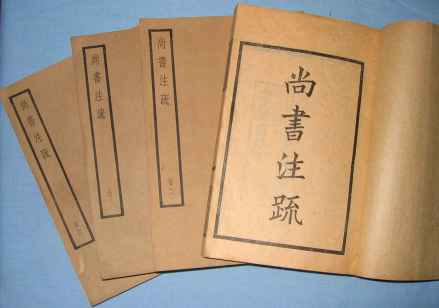 尚書注疏
尚書注疏
尚書注疏
尚書注疏